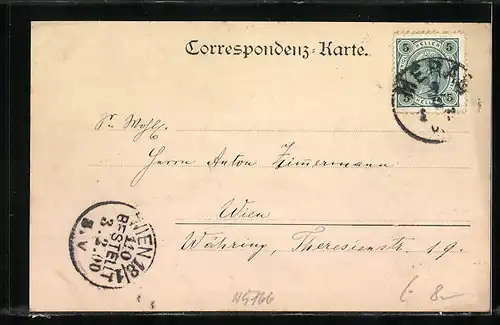 Correspondenz-Karte.
5 HELLER 5
MERAN
Sr. Wohlg.
Herrn Anton Zimmermann
Wien
Währing, Theresienstr. 19.
WIEN 18/1
BESTELLT
3. 2. 00
8. V